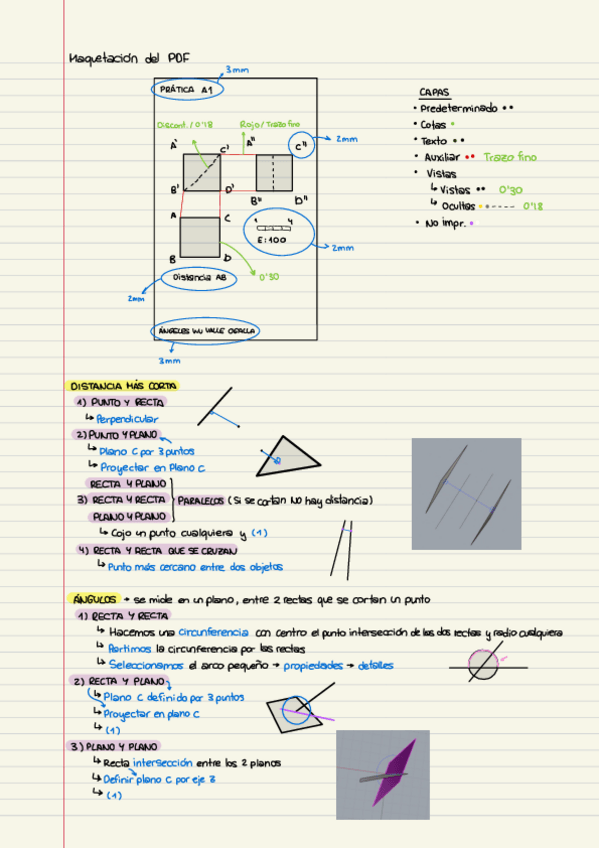 Maquetación del PDF
3mm
PRÁTICA A1
Discont./0'18
Rojo/Trazo fino
A'
C'
A"
C"
2mm
B'
D'
B"
D"
A
C
1 4
E:100
2mm
B
D
0'30
Distancia AB
2mm
3mm
CAPAS
• Predeterminado
• Cotas
• Texto
• Auxiliar Trazo fino
• Vistas
↳ Vistas 0'30
↳ Ocultas 0'18
• No impr.
DISTANCIA MÁS CORTA
1) PUNTO Y RECTA
↳ Perpendicular
2) PUNTO Y PLANO
↳ Plano C por 3 puntos
↳ Proyectar en Plano C
RECTA Y PLANO
3) RECTA Y RECTA PARALELOS (Si se cortan NO hay distancia)
PLANO Y PLANO
↳ Cojo un punto cualquiera y (1)
4) RECTA Y RECTA QUE SE CRUZAN
↳ Punto más cercano entre dos objetos
ÁNGULOS → se mide en un plano, entre 2 rectas que se cortan un punto
1) RECTA Y RECTA
↳ Hacemos una circunferencia con centro el punto intersección de las dos rectas y radio cualquiera
↳ Partimos la circunferencia por las rectas
↳ Seleccionamos el arco pequeño → propiedades → detalles
2) RECTA Y PLANO
↳ Plano C definido por 3 puntos
↳ Proyectar en plano C
↳ (1)
3) PLANO Y PLANO
↳ Recta intersección entre los 2 planos
↳ Definir plano C por eje Z
↳ (1)